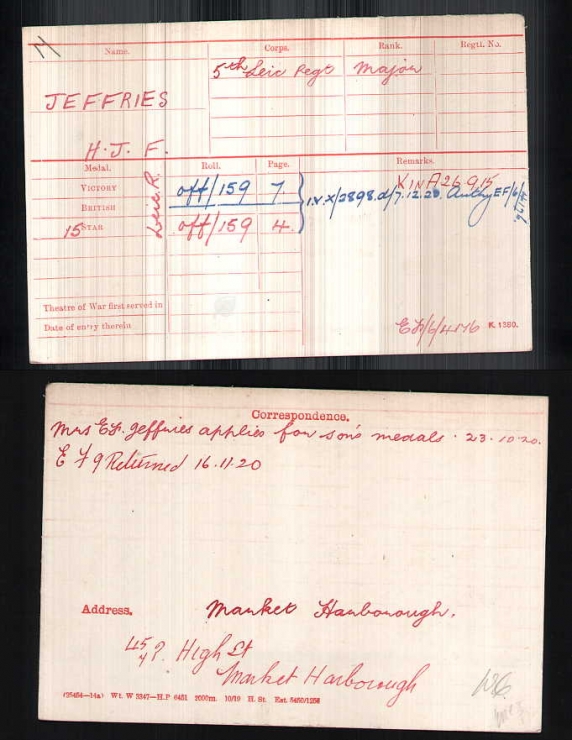 Name. Corps. Rank. Regtl. No.
5th Leic Regt Major
JEFFRIES
H. J. F.
Medal. Roll. Page. Remarks.
VICTORY off/159 7. K in A 26.9.15
BRITISH I.V.X/2898.d/7.12.20. Authy EF/6/
15 STAR off/159 4.
Leic R.
Theatre of War first served in
Date of entry therein
EF/6/4176 K. 1380.
Correspondence.
Mrs E.F. Jeffries applies for son's medals. 23.10.20.
E F 9 Returned 16.11.20
Address. Market Harborough.
High St
Market Harborough
(25454—14a) Wt. W 3347—H.P 6451 2000m. 10/19 H. St. Est. 5450/1258